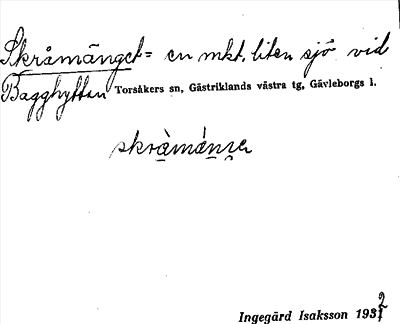 Skråmänget = en mkt. liten sjö vid
Bagghyttan Torsåkers sn, Gästriklands västra tg, Gävleborgs l.
Ingegärd Isaksson 1932